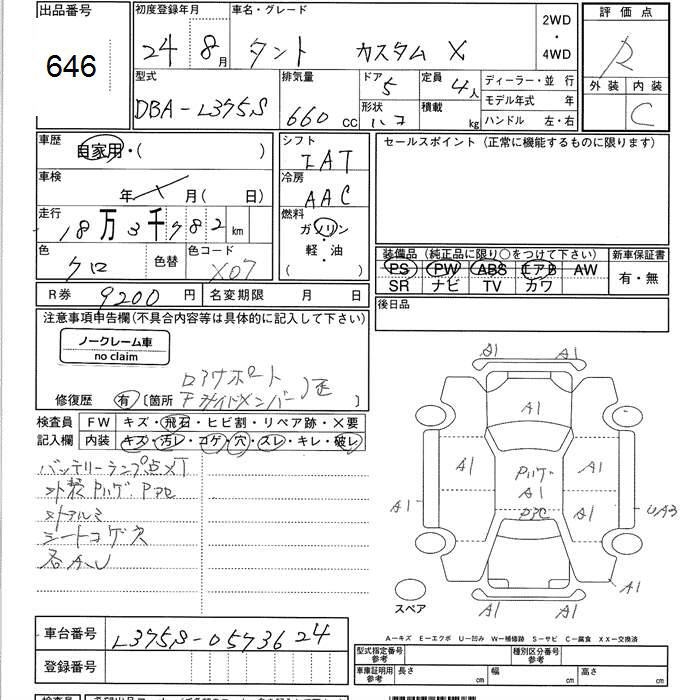 出品番号 初度登録年月 車名・グレード 2WD・4WD 評価点
646 24年8月 タント カスタム X R
型式 排気量 ドア 5 定員 4人 ディーラー・並 行 外装 内装
DBA-L375S 660cc 形状 ハコ 積載 kg モデル年式 年 C
ハンドル 左・右
車歴 自家用・( ) シフト セールスポイント (正常に機能するものに限ります)
IAT
車検 年 月( 日) 冷房
AAC
走行 18万3千782km 燃料
ガソリン
軽・油
( )
色 クロ 色替 色コード X07
装備品 (純正品に限り○をつけて下さい) 新車保証書
PS PW ABS エアB AW 有・無
SR ナビ TV カワ
R券 9200円 名変期限 月 日 後日品
注意事項申告欄(不具合内容等は具体的に記入して下さい)
ノークレーム車
no claim
ロアサポート
修復歴 有 [箇所 サイドメンバー ]
検査員 FW キズ・飛石・ヒビ割・リペア跡・X要
記入欄 内装 キズ・汚レ・コゲ・穴・スレ・キレ・破レ
バッテリーランプ点灯
外装ハゲ
外アルミ
シートコゲ穴
各A.U
A1 A1
A1
A1 ハゲ A1
A1 A1 A1 UA3
A1 A1 A1
スペア
A―キズ E―エクボ U―凹み W―補修跡 S―サビ C―腐食 XX―交換済
車台番号 L375S-0573624
登録番号
型式指定番号 参考 種別区分番号 参考
車庫証明用 参考 長さ cm 幅 cm 高さ cm